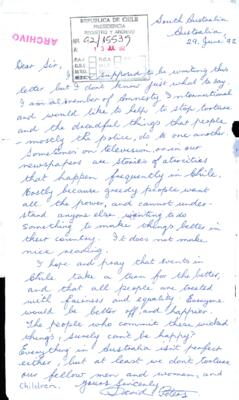 ARCHIVO
REPUBLICA DE CHILE
PRESIDENCIA
REGISTRO Y ARCHIVO
NR 92/15539
South Australia
Australia
29. June '92
Dear Sir,
I supposed to be writing this
letter but I don't know just what to say.
I am a member of Amnesty International
and would like to help to stop torture
and the dreadful things that people
- mostly the police, do to one another.
Sometimes on television, or in our
newspapers are stories of atrocities
that happen frequently in Chile.
Mostly because greedy people want
all the power, and cannot under-
stand anyone else wanting to do
something to make things better in
their country. It does not make
nice reading.
I hope and pray that events in
Chile take a turn for the better,
and that all people are treated
with fairness and equality. Everyone
would be better off and happier.
The people who commit these wicked
things, surely can't be happy?
Everything in Australia isn't perfect
either, but at least we don't torture
our fellow men and women, and
children. Yours Sincerely